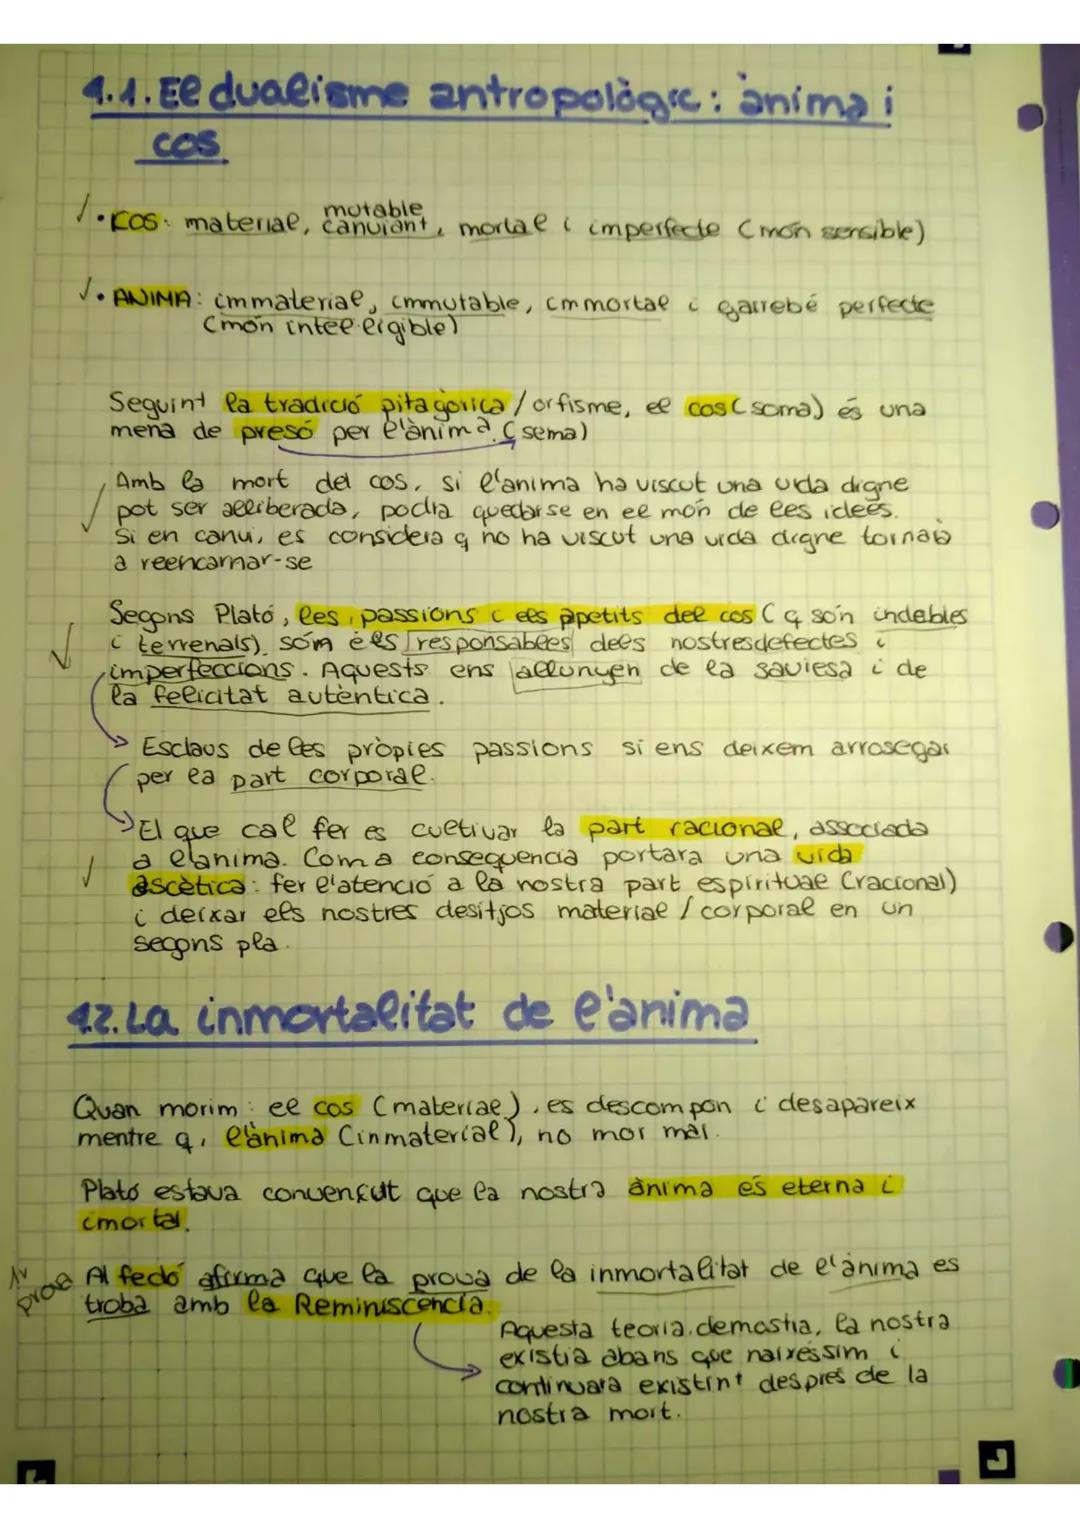 4.1. El dualisme antropològic: ànima i
cos
✓ • COS: material, mutable canviant, mortal i imperfecte (món sensible)
✓ • ANIMA: immaterial, immutable, immortal i gairebé perfecte
(món intel·ligible)
Seguint la tradició pitagòrica / orfisme, el cos (soma) és una
mena de presó per l'ànima (sema)
Amb la mort del cos, si l'anima ha viscut una vida digne
pot ser alliberada, podra quedarse en el món de les idees.
Si en canvi, es considera q no ha viscut una vida digne tornarà
a reencarnar-se
Segons Plató, les passions i els apetits del cos (q són indebles
i terrenals) són els responsables dels nostres defectes i
imperfeccions. Aquests ens allunyen de la saviesa i de
la felicitat autèntica.
Esclaus de les pròpies passions si ens deixem arrosegar
per la part corporal.
El que cal fer es cultivar la part racional, associada
a l'anima. Com a consequencia portara una vida
ascètica: fer l'atenció a la nostra part espiritual (racional)
i deixar els nostres desitjos material / corporal en un
segons pla.
4.2. La inmortalitat de l'ànima
Quan morim: el cos (material), es descompon i desapareix
mentre q, l'ànima (inmaterial), no mor mai.
Plató estava convençut que la nostra ànima és eterna i
imortal.
1r prova
Al fedó afirma que la prova de la inmortalitat de l'ànima es
troba amb la Reminiscencia.
Aquesta teoria demostra, la nostra
existia abans que naixéssim i
continuara existint després de la
nostra mort.